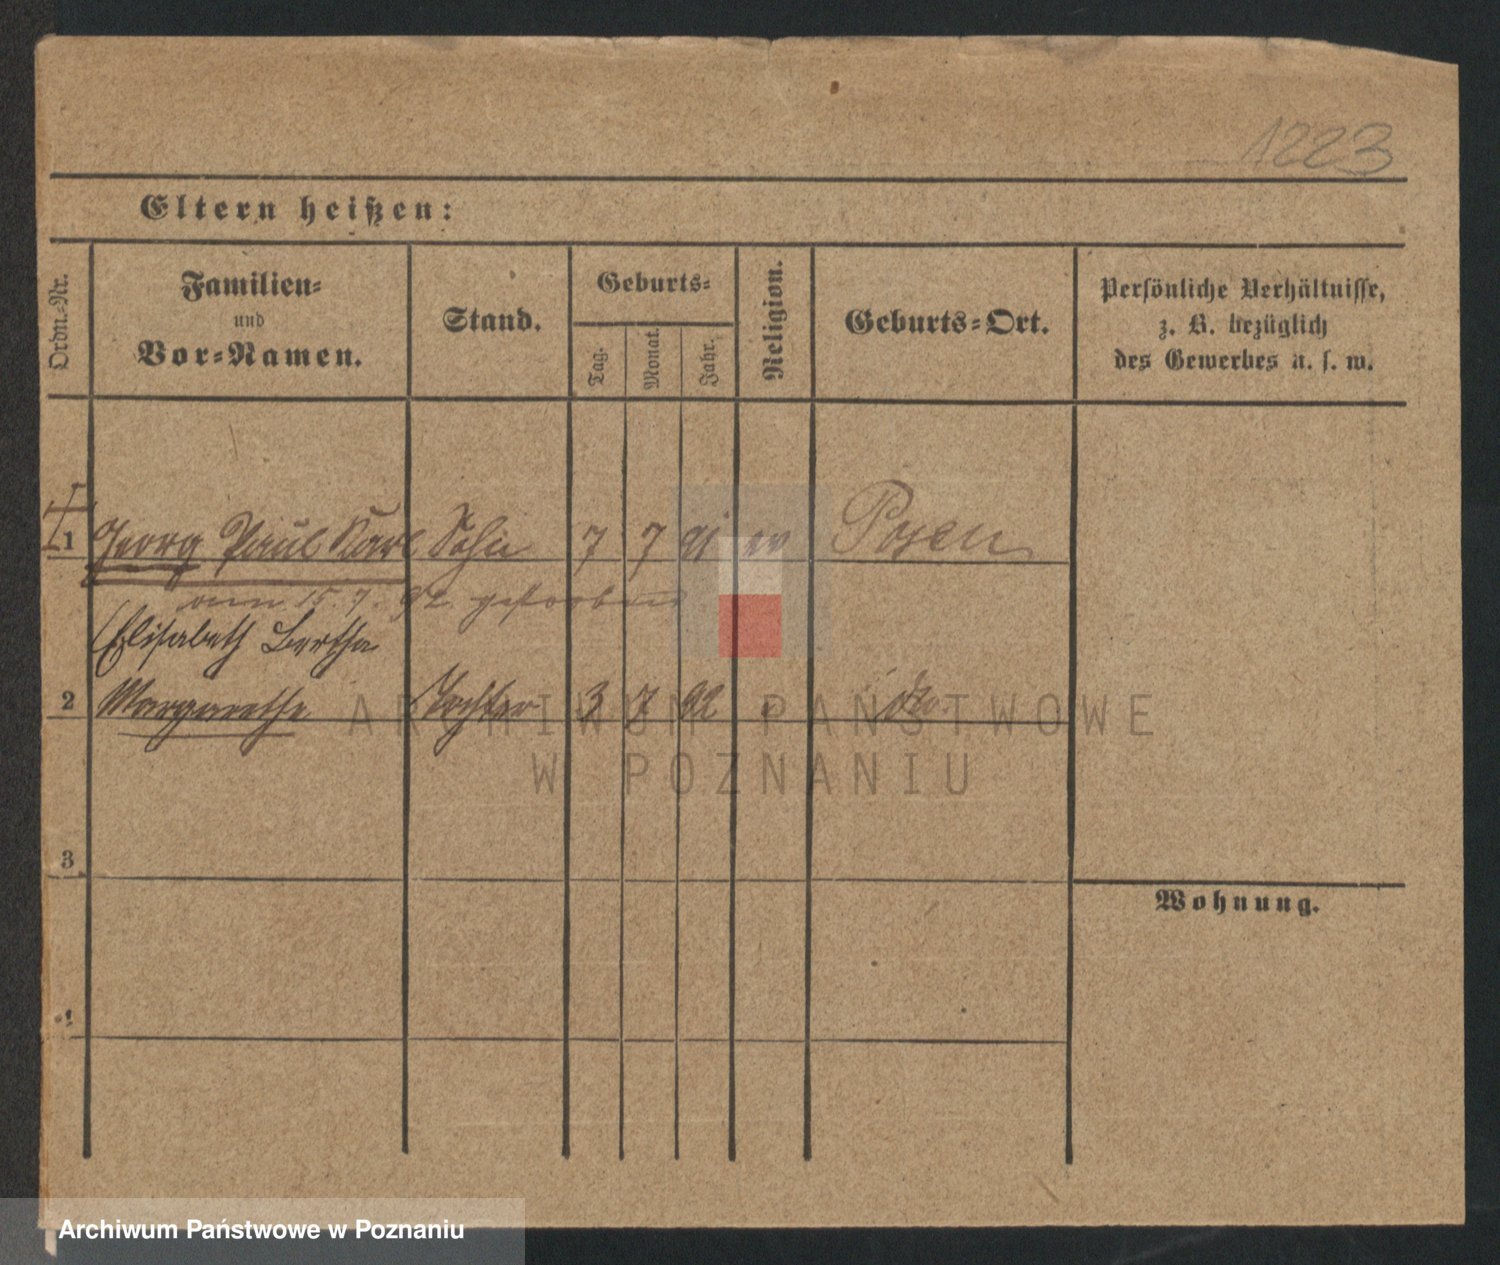 1223
Eltern heißen:
Ordn.-Nr.
Familien-
und
Vor-Namen.
Stand.
Geburts-
Tag.
Monat.
Jahr.
Religion.
Geburts-Ort.
Persönliche Verhältnisse,
z. B. bezüglich
des Gewerbes u. s. w.
1 Georg Paul Karl Sohn 7 7 91 ev Posen
am 15. 7. 92 gestorben
Elisabeth Bertha
2 Margarethe Tochter 3 7 92 do
ARCHIWUM PAŃSTWOWE
W POZNANIU
3
Wohnung.
4
Archiwum Państwowe w Poznaniu